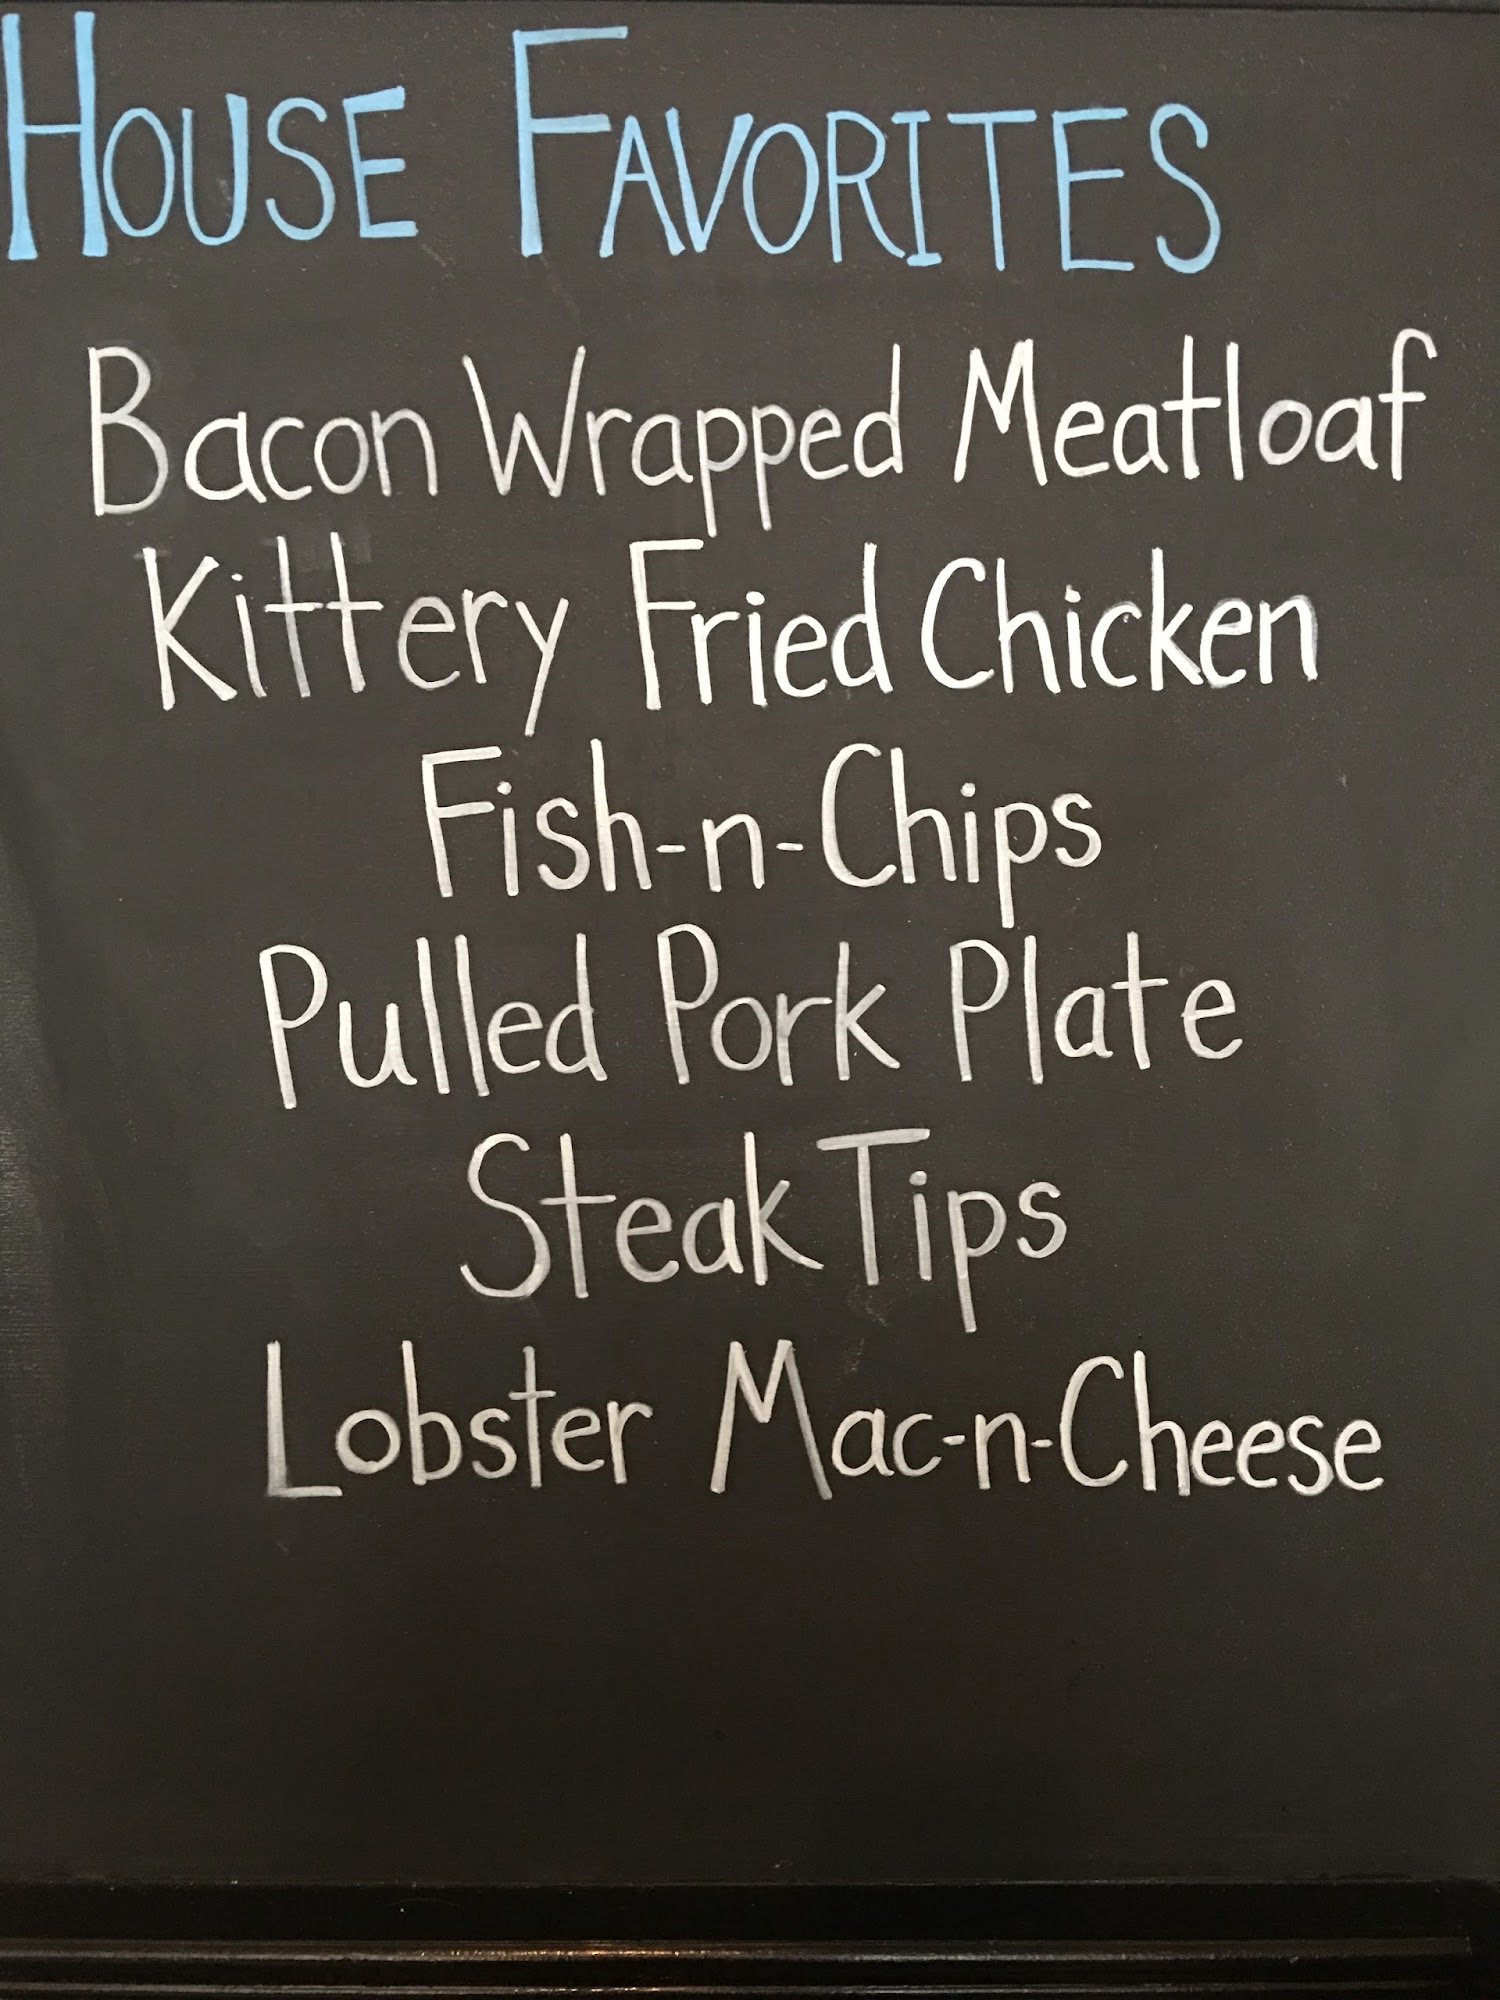 HOUSE FAVORITES
Bacon Wrapped Meatloaf
Kittery Fried Chicken
Fish-n-Chips
Pulled Pork Plate
Steak Tips
Lobster Mac-n-Cheese